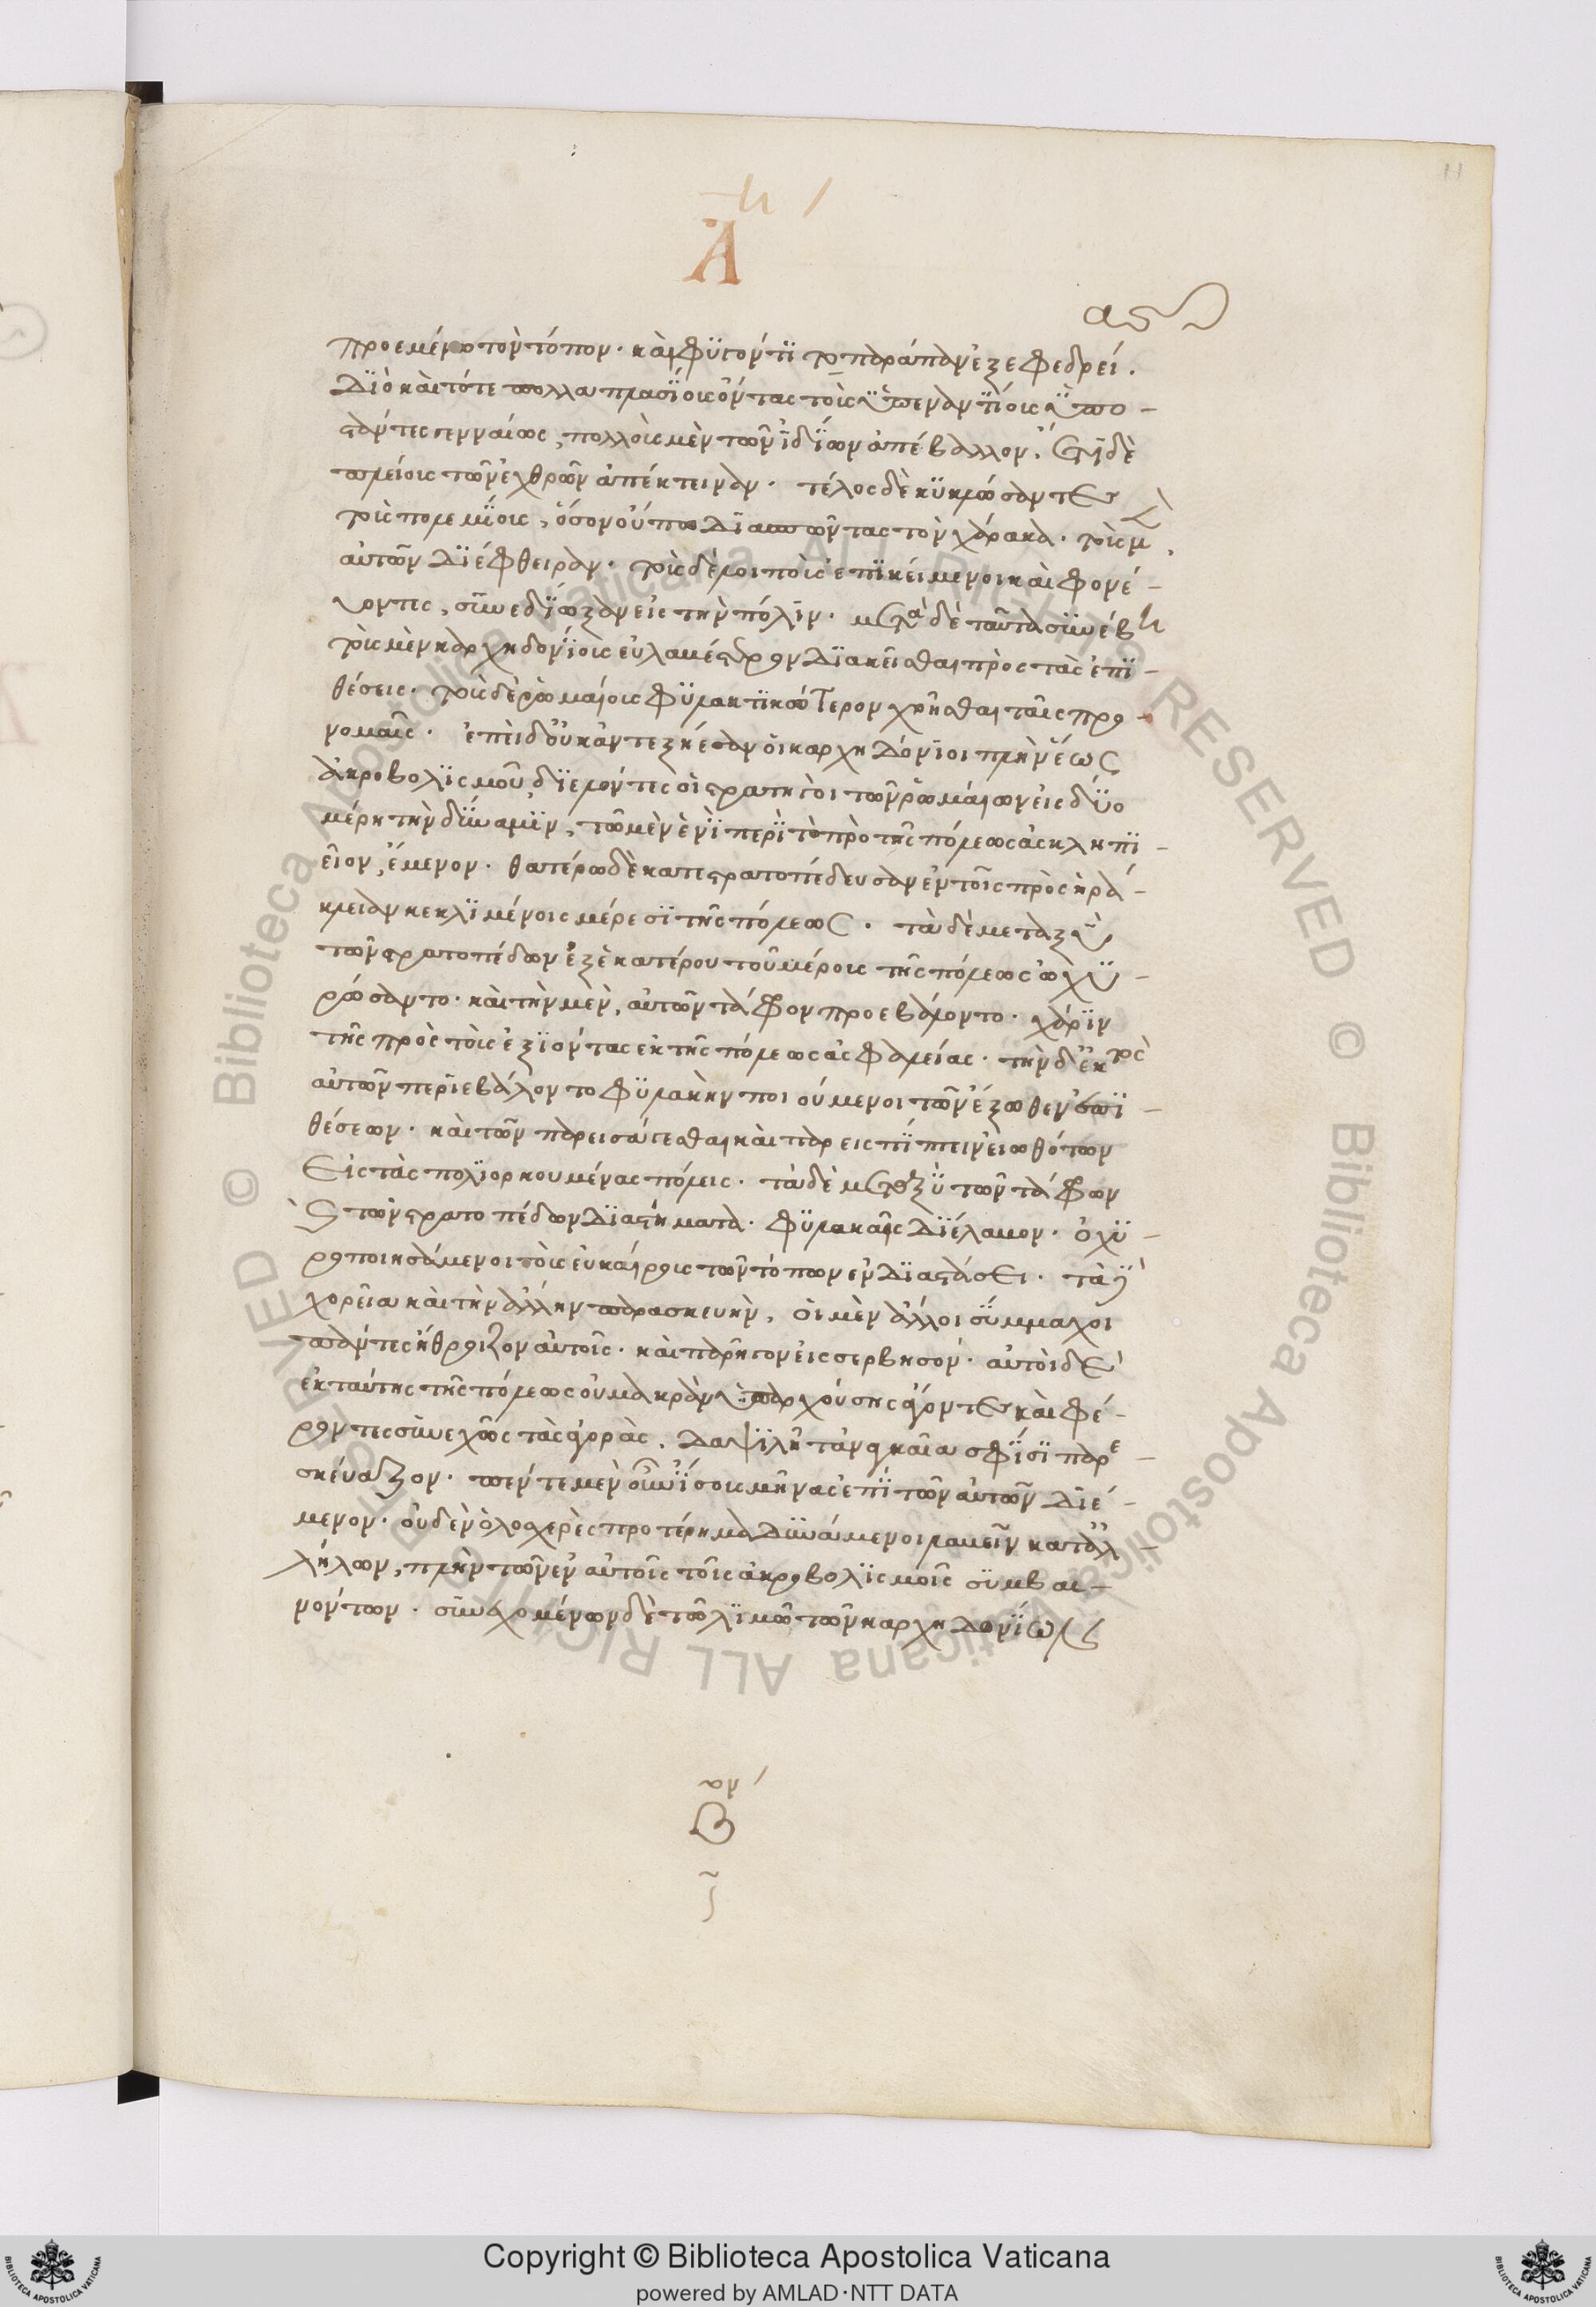 Α
προεμένω τὸν τόπον· καὶ φυγόντι τὸ παράπαν ἐξ ἐφεδρεί.
Διὸ καὶ τότε πολλαπλασίους ὄντας τοὺς ὑπεναντίους ὑπο-
στάντες γενναίως, πολλοὺς μὲν τῶν ἰδίων ἀπέβαλλον. ἔτι δὲ
πλείους τῶν ἐχθρῶν ἀπέκτειναν. τέλος δὲ κυκλώσαντες
τοὺς πολεμίους, ὅσον οὔπω διασπῶντας τὸν χάρακα. τοὺς μ
αὐτῶν διέφθειραν. τοῖς δὲ λοιποῖς ἐπικείμενοι καὶ φονέ-
υοντες, συνεδίωξαν εἰς τὴν πόλιν. μετὰ δὲ ταῦτα συνέβη
τοὺς μὲν καρχηδονίοις εὐλαμέστερον διακεῖσθαι πρὸς τὰς ἐπι-
θέσεις. τοὺς δὲ ῥωμαίοις φυλακτικώτερον χρῆσθαι ταῖς προ-
νομαῖς. ἐπεὶ δ' οὐκ ἀντεξῄεσαν οἱ καρχηδόνιοι πλὴν ἕως
ἀκροβολισμοῦ, διελόντες οἱ στρατηγοὶ τῶν ῥωμαίων εἰς δύο
μέρη τὴν δύναμιν, τῶ μὲν ἑνὶ περὶ τὸ πρὸ τῆς πόλεως ἀσκληπι-
εῖον, ἔμενον. θατέρω δὲ κατεστρατοπέδευσαν ἐν τοῖς πρὸς ἡρά-
κλειαν κεκλιμένοις μέρεσι τῆς πόλεως. τὰ δὲ μεταξὺ
τῶν στρατοπέδων ἐξ ἑκατέρου τοῦ μέρους τῆς πόλεως ὠχυ-
ρώσαντο. καὶ τὴν μὲν, αὐτῶν τάφον προεβάλοντο. χάριν
τῆς πρὸς τοὺς ἐξιόντας ἐκ τῆς πόλεως ἀσφαλείας. τὴν δ' ἐκτὸς
αὐτῶν περιεβάλοντο φυλακὴν ποιούμενοι τῶν ἔξωθεν ἐπι-
θέσεων. καὶ τῶν παρεισάγεσθαι καὶ παρεισπίπτειν εἰωθότων
εἰς τὰς πολιορκουμένας πόλεις. τὰ δὲ μεταξὺ τῶν τάφων
καὶ τῶν στρατοπέδων διαστήματα. φυλακαῖς διέλαβον. ὀχυ-
ροποιησάμενοι τοὺς εὐκαίρους τῶν τόπων ἐν διαστάσει. τὰ δὲ
χορεῖα καὶ τὴν ἄλλην παρασκευὴν, οἱ μὲν ἄλλοι σύμμαχοι
πάντες ἤθροιζον αὐτοῖς. καὶ παρῆγον εἰς ερβησόν. αὐτοὶ δὲ
ἐκ ταύτης τῆς πόλεως οὐ μακρὰν ὑπαρχούσης ἄγοντες καὶ φέ-
ροντες συνεχῶς τὰς ἀγορὰς. δαψιλῆ τἀναγκαῖα σφίσι παρε-
σκεύαζον. πέντε μὲν οὖν ἴσους μῆνας ἐπὶ τῶν αὐτῶν διέ-
μενον. οὐδὲν ὁλοσχερὲς προτέρημα δυνάμενοι λαβεῖν κατ' ἀλ-
λήλων, πλὴν τῶν ἐν αὐτοῖς τοῖς ἀκροβολισμοῖς συμβαι-
νόντων. συναγομένων δὲ τῶ λιμῶ τῶν καρχηδονίων
Β
Copyright © Biblioteca Apostolica Vaticana
powered by AMLAD·NTT DATA